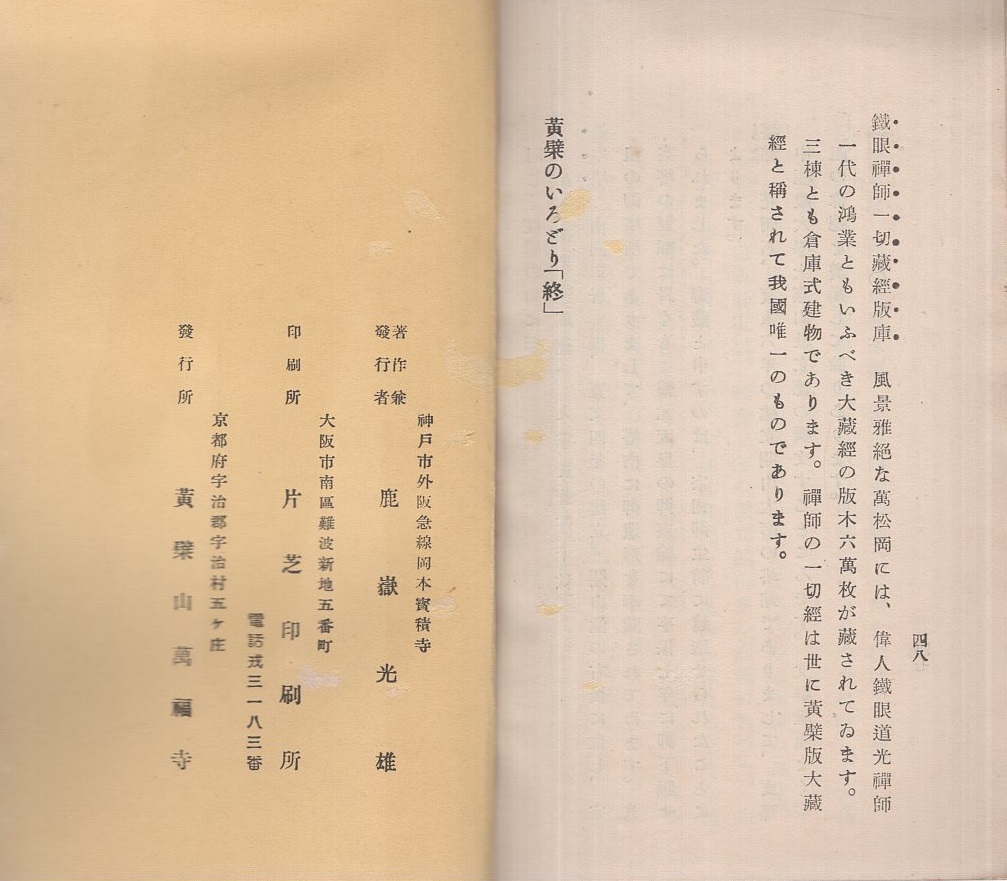 四八
鐵眼禪師一切藏經版庫　風景雅絕な萬松岡には、偉人鐵眼道光禪師
一代の鴻業ともいふべき大藏經の版木六萬枚が藏されてゐます。
三棟とも倉庫式建物であります。禪師の一切經は世に黃檗版大藏
經と稱されて我國唯一のものであります。
黃檗のいろどり「終」
神戶市外阪急線岡本寳積寺
著作兼
發行者　鹿嶽光雄
大阪市南區難波新地五番町
印刷所　片芝印刷所
電話戎三一八三番
京都府宇治郡宇治村五ヶ庄
發行所　黃檗山萬福寺